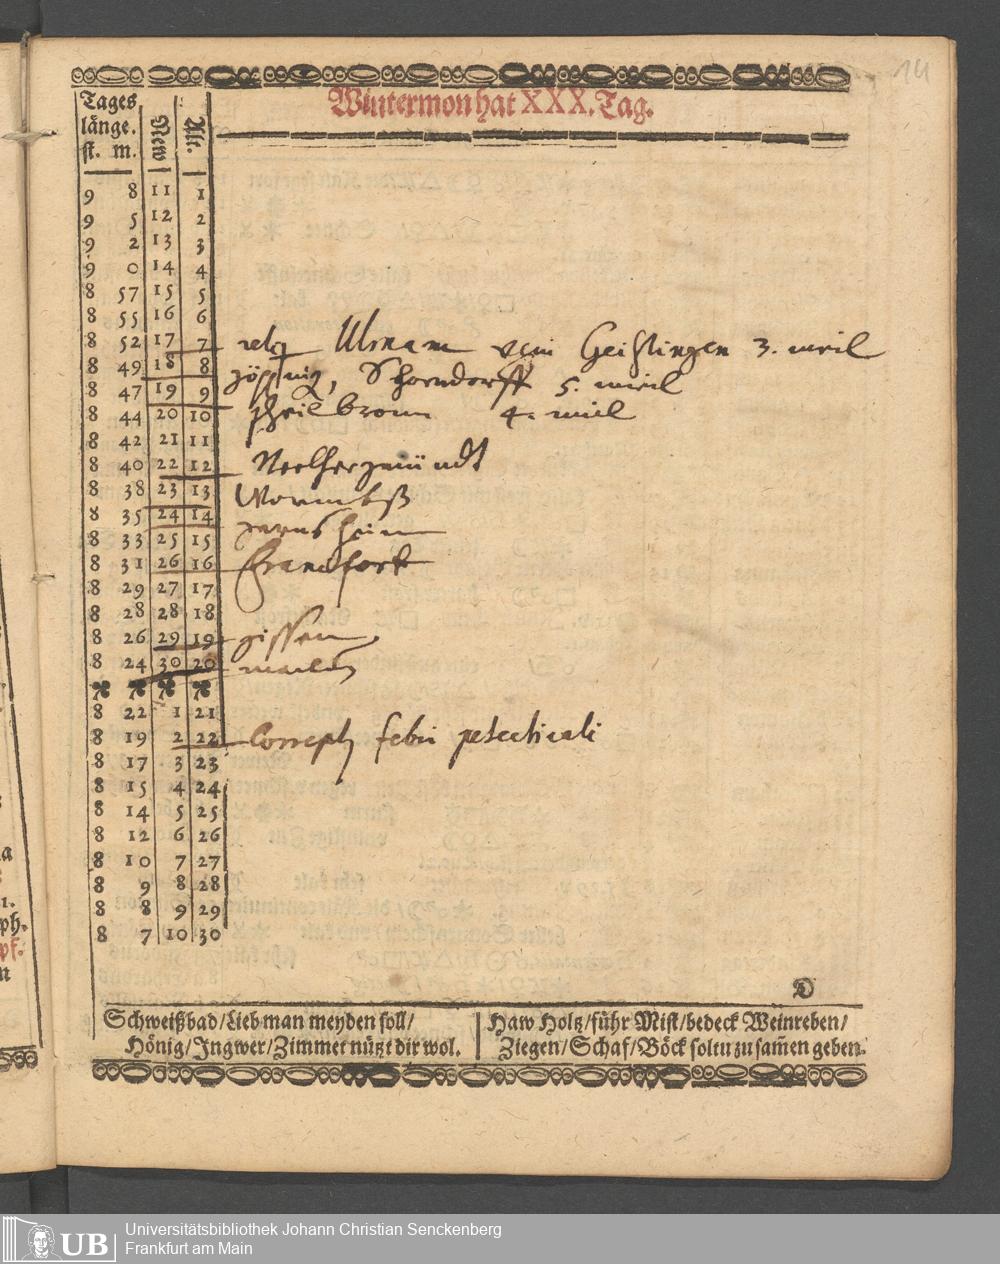 14
Wintermon hat XXX. Tag.
Tages
länge. New Alt.
st. m.
9 8 11 1
9 5 12 2
9 2 13 3
9 0 14 4
8 57 15 5
8 55 16 6
8 52 17 7 Ulmam Geißlingen 3. meil
8 49 18 8 Schorndorff 5. meil
8 47 19 9 Heilbronn 4. meil
8 44 20 10
8 42 21 11
8 40 22 12
8 38 23 13 Wormbß
8 35 24 14
8 33 25 15
8 31 26 16 Francfort
8 29 27 17
8 28 28 18
8 26 29 19 gissen
8 24 30 20
8 22 1 21
8 19 2 22 febri petechiali
8 17 3 23
8 15 4 24
8 14 5 25
8 12 6 26
8 10 7 27
8 9 8 28
8 8 9 29
8 7 10 30
D
Schweißbad/Lieb man meyden soll/
Hönig/Ingwer/Zimmet nützt dir wol.
Haw Holtz/führ Mist/bedeck Weinreben/
Ziegen/Schaf/Böck soltu zusam̃en geben.
Universitätsbibliothek Johann Christian Senckenberg
UB Frankfurt am Main